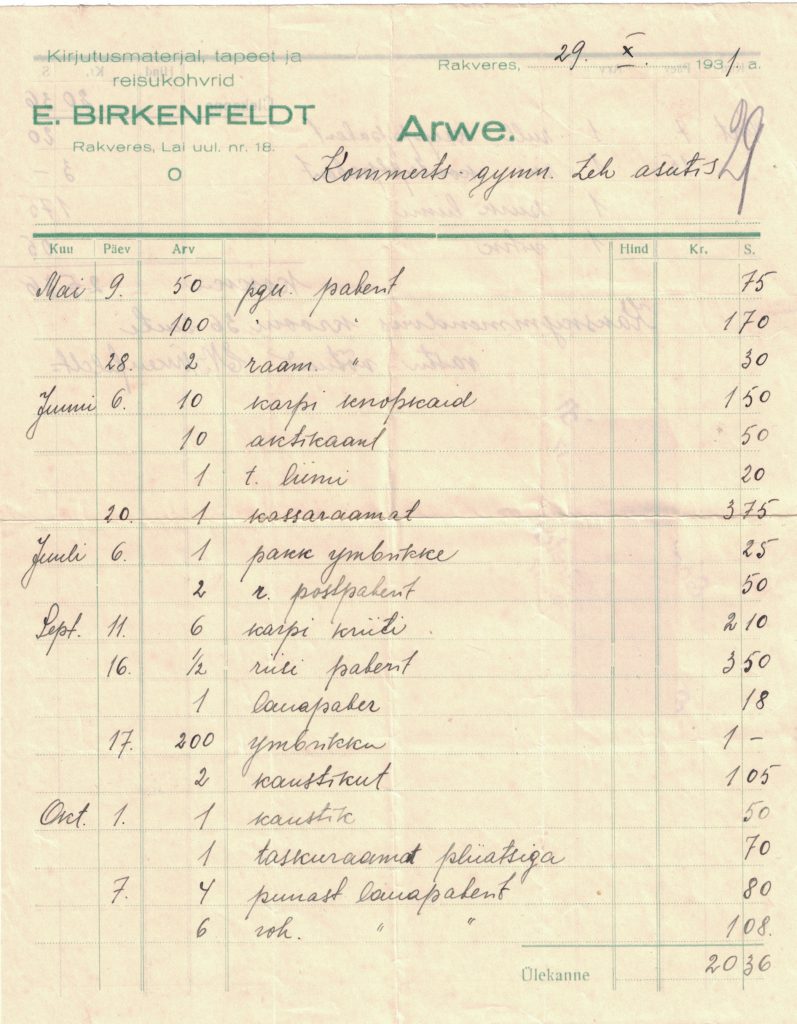 Kirjutusmaterjal, tapeet ja
reisukohvrid
E. BIRKENFELDT
Rakveres, Lai uul. nr. 18.
Rakveres, 29. X. 1931. a.
Arwe.
29
Kommerts. gymn. Leh asutis
Kuu Päev Arv Hind Kr. S.
Mai 9. 50 pgu. paberit 75
100 " " 1 70
28. 2 raam. " 30
Juuni 6. 10 karpi knopkaid 1 50
10 aktikaant 50
1 t. liimi 20
20. 1 kassaraamat 3 75
Juuli 6. 1 pakk ymbrikke 25
2 r. postpaberit 50
Sept. 11. 6 karpi kriiti 2 10
16. 1/2 riisi paberit 3 50
1 lauapaber 18
17. 200 ymbrikku 1 –
2 kaustikut 1 05
Okt. 1. 1 kaustik 50
1 taskuraamat pliiatsiga 70
7. 4 punast lauapaberit 80
6 roh. " " 1 08.
Ülekanne 20 36